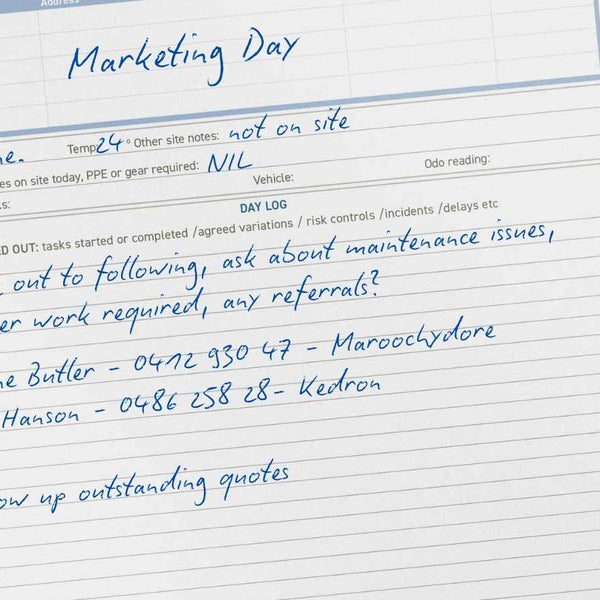 Address
Marketing Day
ne. Temp: 24° Other site notes: not on site
es on site today, PPE or gear required: NIL
s: Vehicle: Odo reading:
DAY LOG
ED OUT: tasks started or completed /agreed variations / risk controls /incidents /delays etc
out to following, ask about maintenance issues,
er work required, any referrals?
ne Butler - 0412 930 47 - Maroochydore
Hanson - 0486 258 28 - Kedron
ow up outstanding quotes